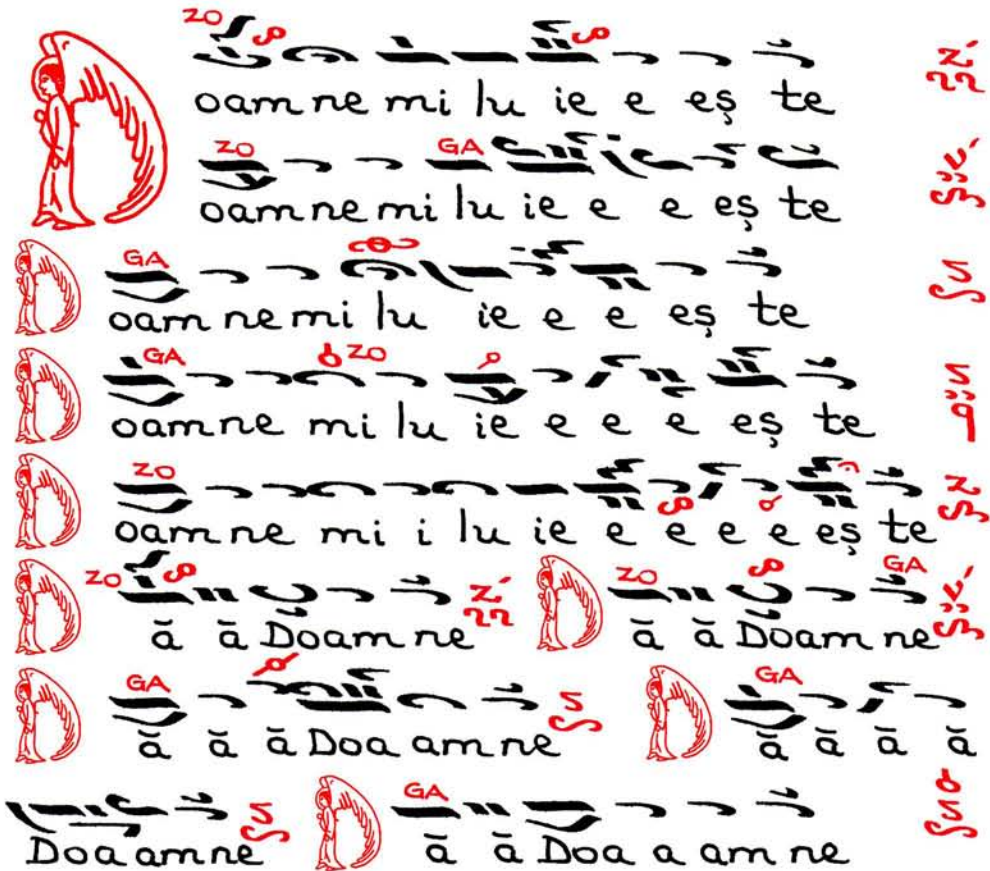 ZO
Doam ne mi lu ie e eș te
ZO GA
oam ne mi lu ie e e eș te
GA
Doam ne mi lu ie e e eș te
GA ZO
Doam ne mi lu ie e e e eș te
ZO
Doam ne mi i lu ie e e e e eș te
ZO ZO GA
Dă ă Doam ne Dă ă Doam ne
GA GA
Dă ă ă Doa am ne Dă ă ă ă
GA
Doa am ne Dă ă Doa a am ne